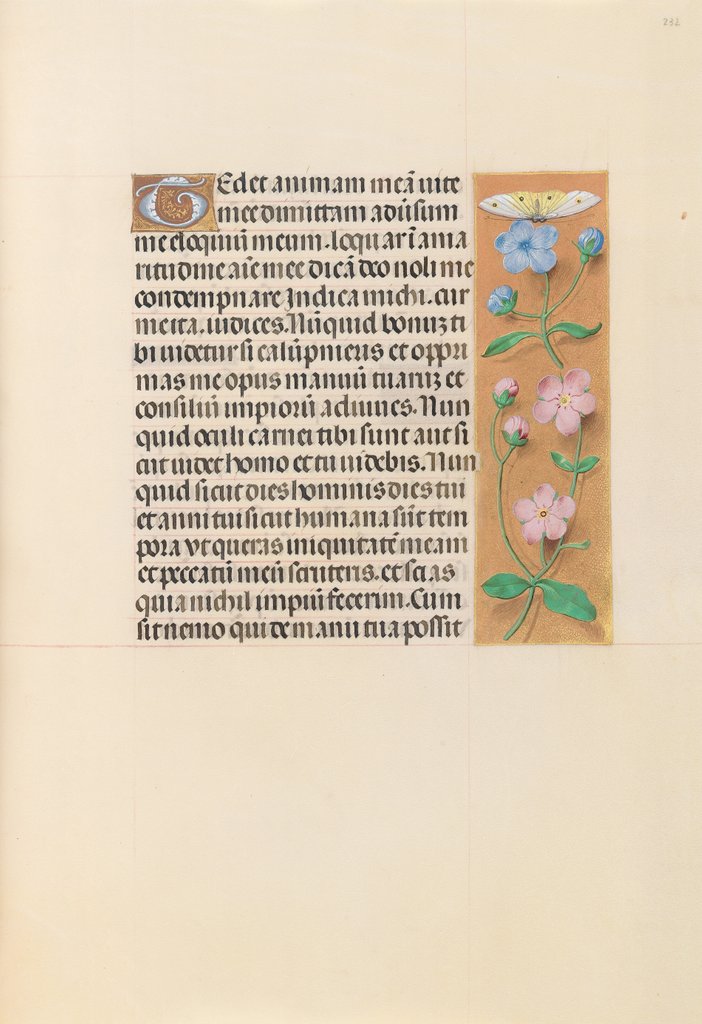 232
Tedet animam meā uite
mee dimittam adūsum
me eloquiū meum. loquar ī ama
ritudine aīe mee dicā deo noli me
condempnare Indica michi. cur
me ita. iudices. Nūquid bonuꝫ ti
bi uidetur si calūpnieris et oppri
mas me opus manuū tuaruꝫ et
consiliū impiorū adiuues. Nun
quid oculi carnei tibi sunt aut si
cut uidet homo et tu uidebis. Nun
quid sicut dies hominis dies tui
et anni tui sicut humana sūt tem
pora vt queras iniquitatē meam
et peccatū meū scruteris. et scias
quia nichil impiū fecerim. Cum
sit nemo qui de manu tua possit